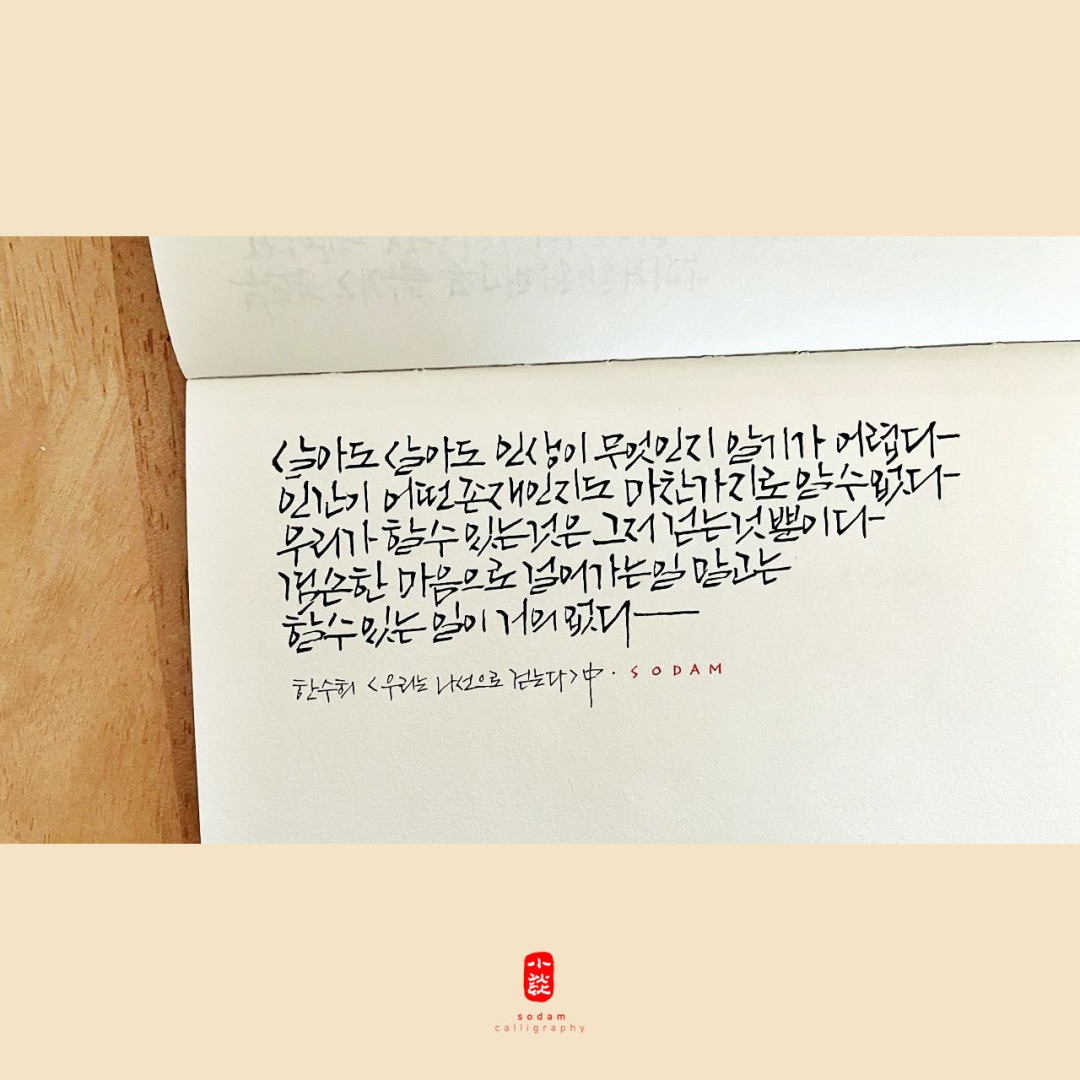 살아도 살아도 인생이 무엇인지 알기가 어렵다
인간이 어떤 존재인지도 마찬가지로 알 수 없다
우리가 할 수 있는 것은 그저 걷는 것뿐이다
겸손한 마음으로 걸어가는 일 말고는
할 수 있는 일이 거의 없다
한수희 <우리는 나선으로 걷는다> 中 · SODAM
小
sodam
calligraphy